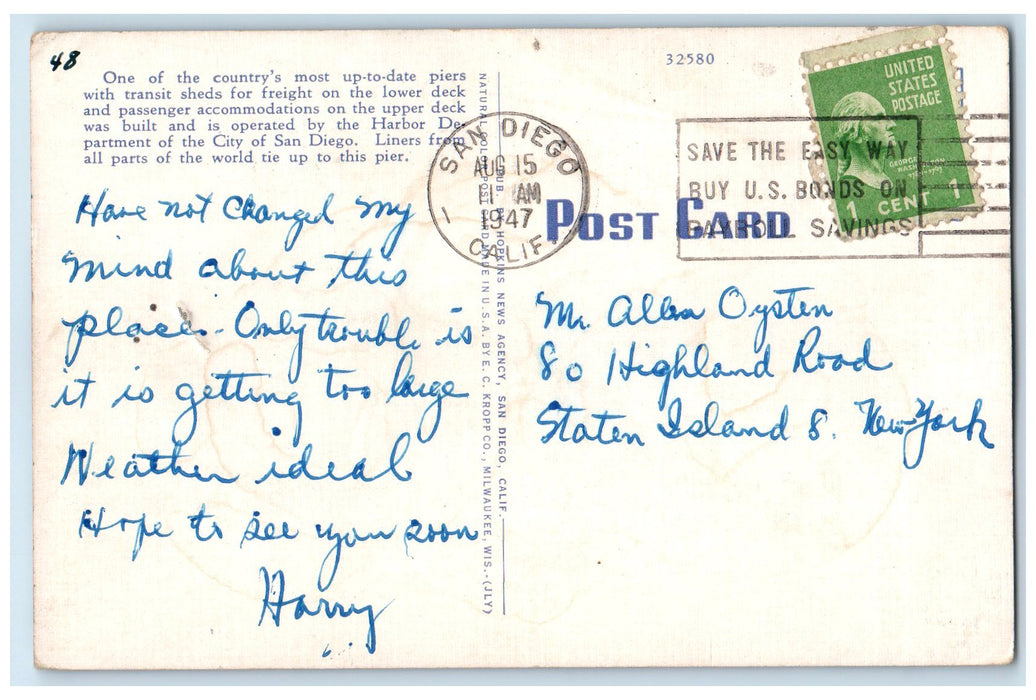 48
One of the country's most up-to-date piers
with transit sheds for freight on the lower deck
and passenger accommodations on the upper deck
was built and is operated by the Harbor De-
partment of the City of San Diego. Liners from
all parts of the world tie up to this pier.
Have not changed my
mind about this
place. - Only trouble is
it is getting too large
Weather ideal
Hope to see you soon
Harry
NATURAL COLOR POST CARD MADE IN U.S.A. BY E. C. KROPP CO., MILWAUKEE, WIS.-(JLY)
PUB. BY HOPKINS NEWS AGENCY, SAN DIEGO, CALIF.
32580
SAN DIEGO
AUG 15
AM
1947
CALIF.
1
POST CARD
SAVE THE EASY WAY
BUY U.S. BONDS ON
PAYROLL SAVINGS
UNITED
STATES
POSTAGE
GEORGE
WASHINGTON
1 CENT
Mr. Allen Oysten
80 Highland Road
Staten Island 8. New York